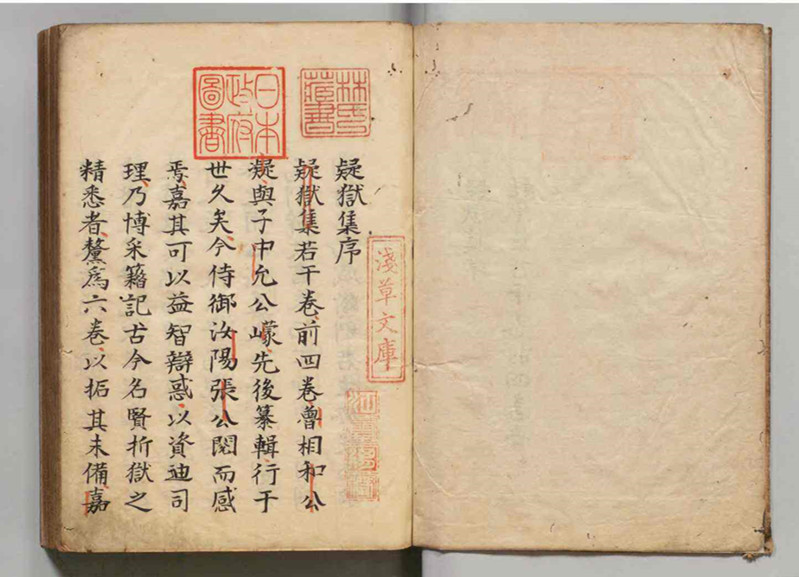 林氏藏書
日本政府圖書
疑獄集序
疑獄集若干卷前四卷魯相和公
凝與子中允公㠓先後纂輯行于
世久矣今侍御汝陽張公閱而感
焉嘉其可以益智辯惑以資迪司
理乃博采籍記古今名賢折獄之
精悉者釐爲六卷以拓其未備嘉
淺草文庫
江雲渭樹